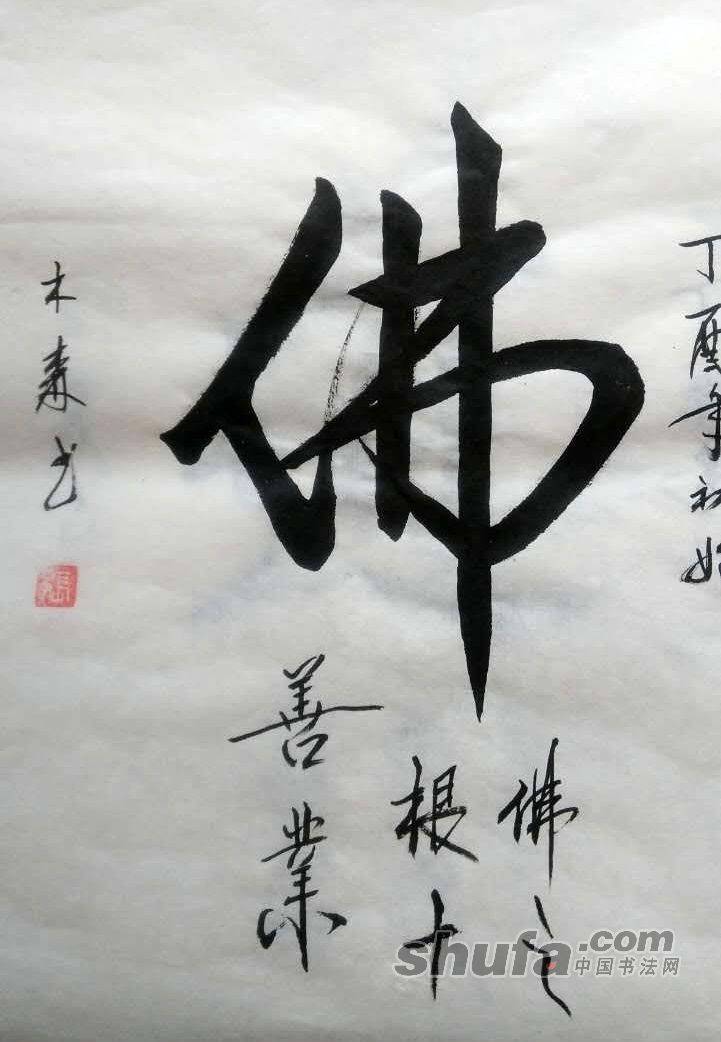 丁酉年初始
佛
佛之
根十
善業
木森书
shufa.com
中国书法网